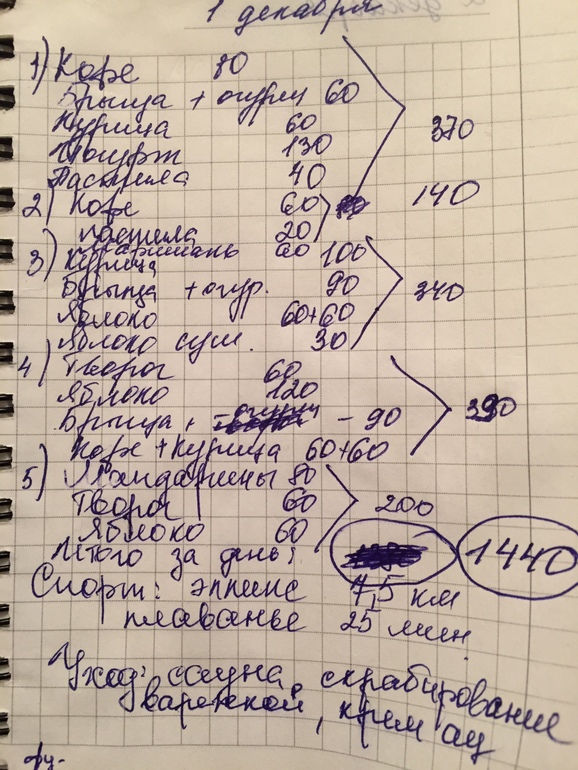 1 декабря
1) Кофе 80
Брынза + огурец 60
Курица 60
Йогурт 130 370
Пастила 40
2) Кофе 60 140
пастила 20
3) Курица 60 100
Брынза + огур. 90 340
Яблоко 60+60
Яблоко суш. 30
4) Творог 60
Яблоко 120
Брынза + огурец - 90 390
Кофе + Курица 60+60
5) Мандарины 80
Творог 60 200
Яблоко 60
Итого за день: 1440
Спорт: эллипс 7,5 км
плаванье 25 мин
Уход: сауна, скрабирование
варежкой, крем ац